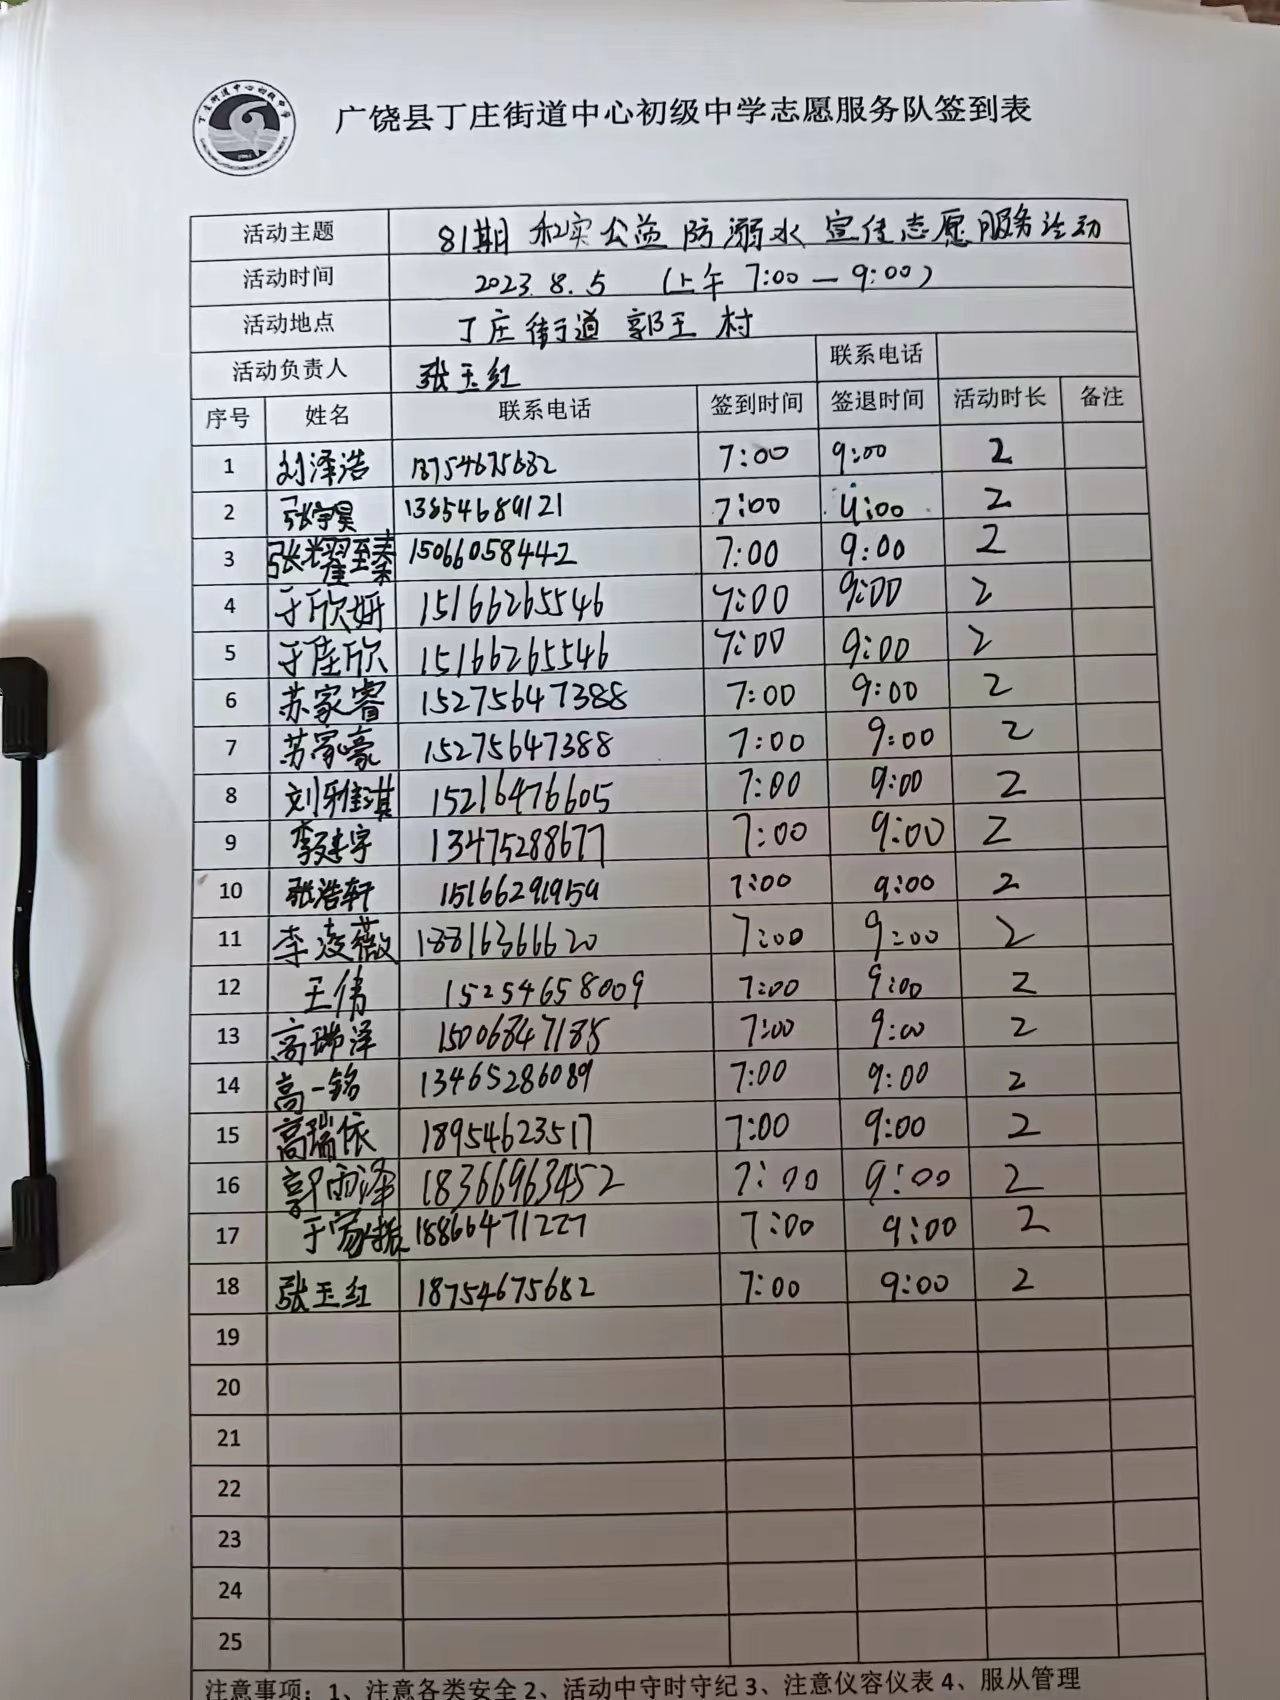 丁庄街道中心初级中学
广饶县丁庄街道中心初级中学志愿服务队签到表
活动主题 81期 和实公益 防溺水 宣传志愿服务活动
活动时间 2023.8.5 (上午 7:00 — 9:00)
活动地点 丁庄街道 郭王村
活动负责人 张玉红 联系电话
序号 姓名 联系电话 签到时间 签退时间 活动时长 备注
1 刘泽浩 18754675682 7:00 9:00 2
2 张宇昊 13854689121 7:00 9:00 2
3 张耀至秦 15066058442 7:00 9:00 2
4 于欣妍 15166265546 7:00 9:00 2
5 于佳欣 15166265546 7:00 9:00 2
6 苏家睿 15275647388 7:00 9:00 2
7 苏家豪 15275647388 7:00 9:00 2
8 刘雅淇 15216476605 7:00 9:00 2
9 李建宇 13475288677 7:00 9:00 2
10 张浩轩 15166291959 7:00 9:00 2
11 李凌薇 18816366620 7:00 9:00 2
12 王倩 15254658009 7:00 9:00 2
13 高瑞泽 15006847185 7:00 9:00 2
14 高一铭 13465286089 7:00 9:00 2
15 高瑞依 18954623517 7:00 9:00 2
16 郭雨泽 18366963452 7:00 9:00 2
17 于家振 18866471227 7:00 9:00 2
18 张玉红 18754675682 7:00 9:00 2
19
20
21
22
23
24
25
注意事项：1、注意各类安全 2、活动中守时守纪 3、注意仪容仪表 4、服从管理